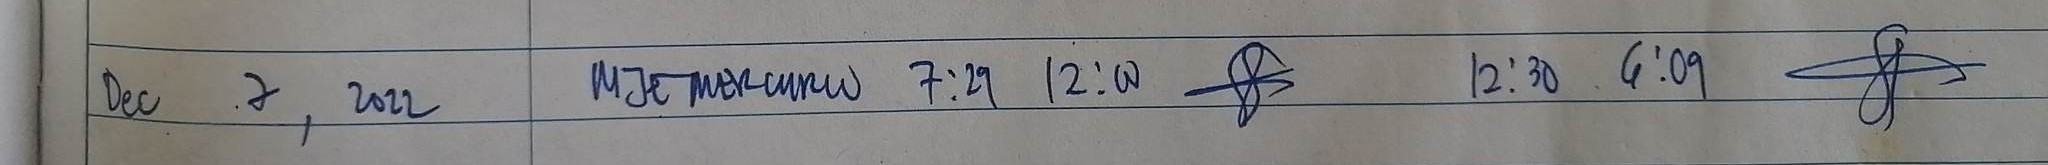 Dec 7, 2022 MJE MERCURIO 7:29 12:00 12:30 6:09